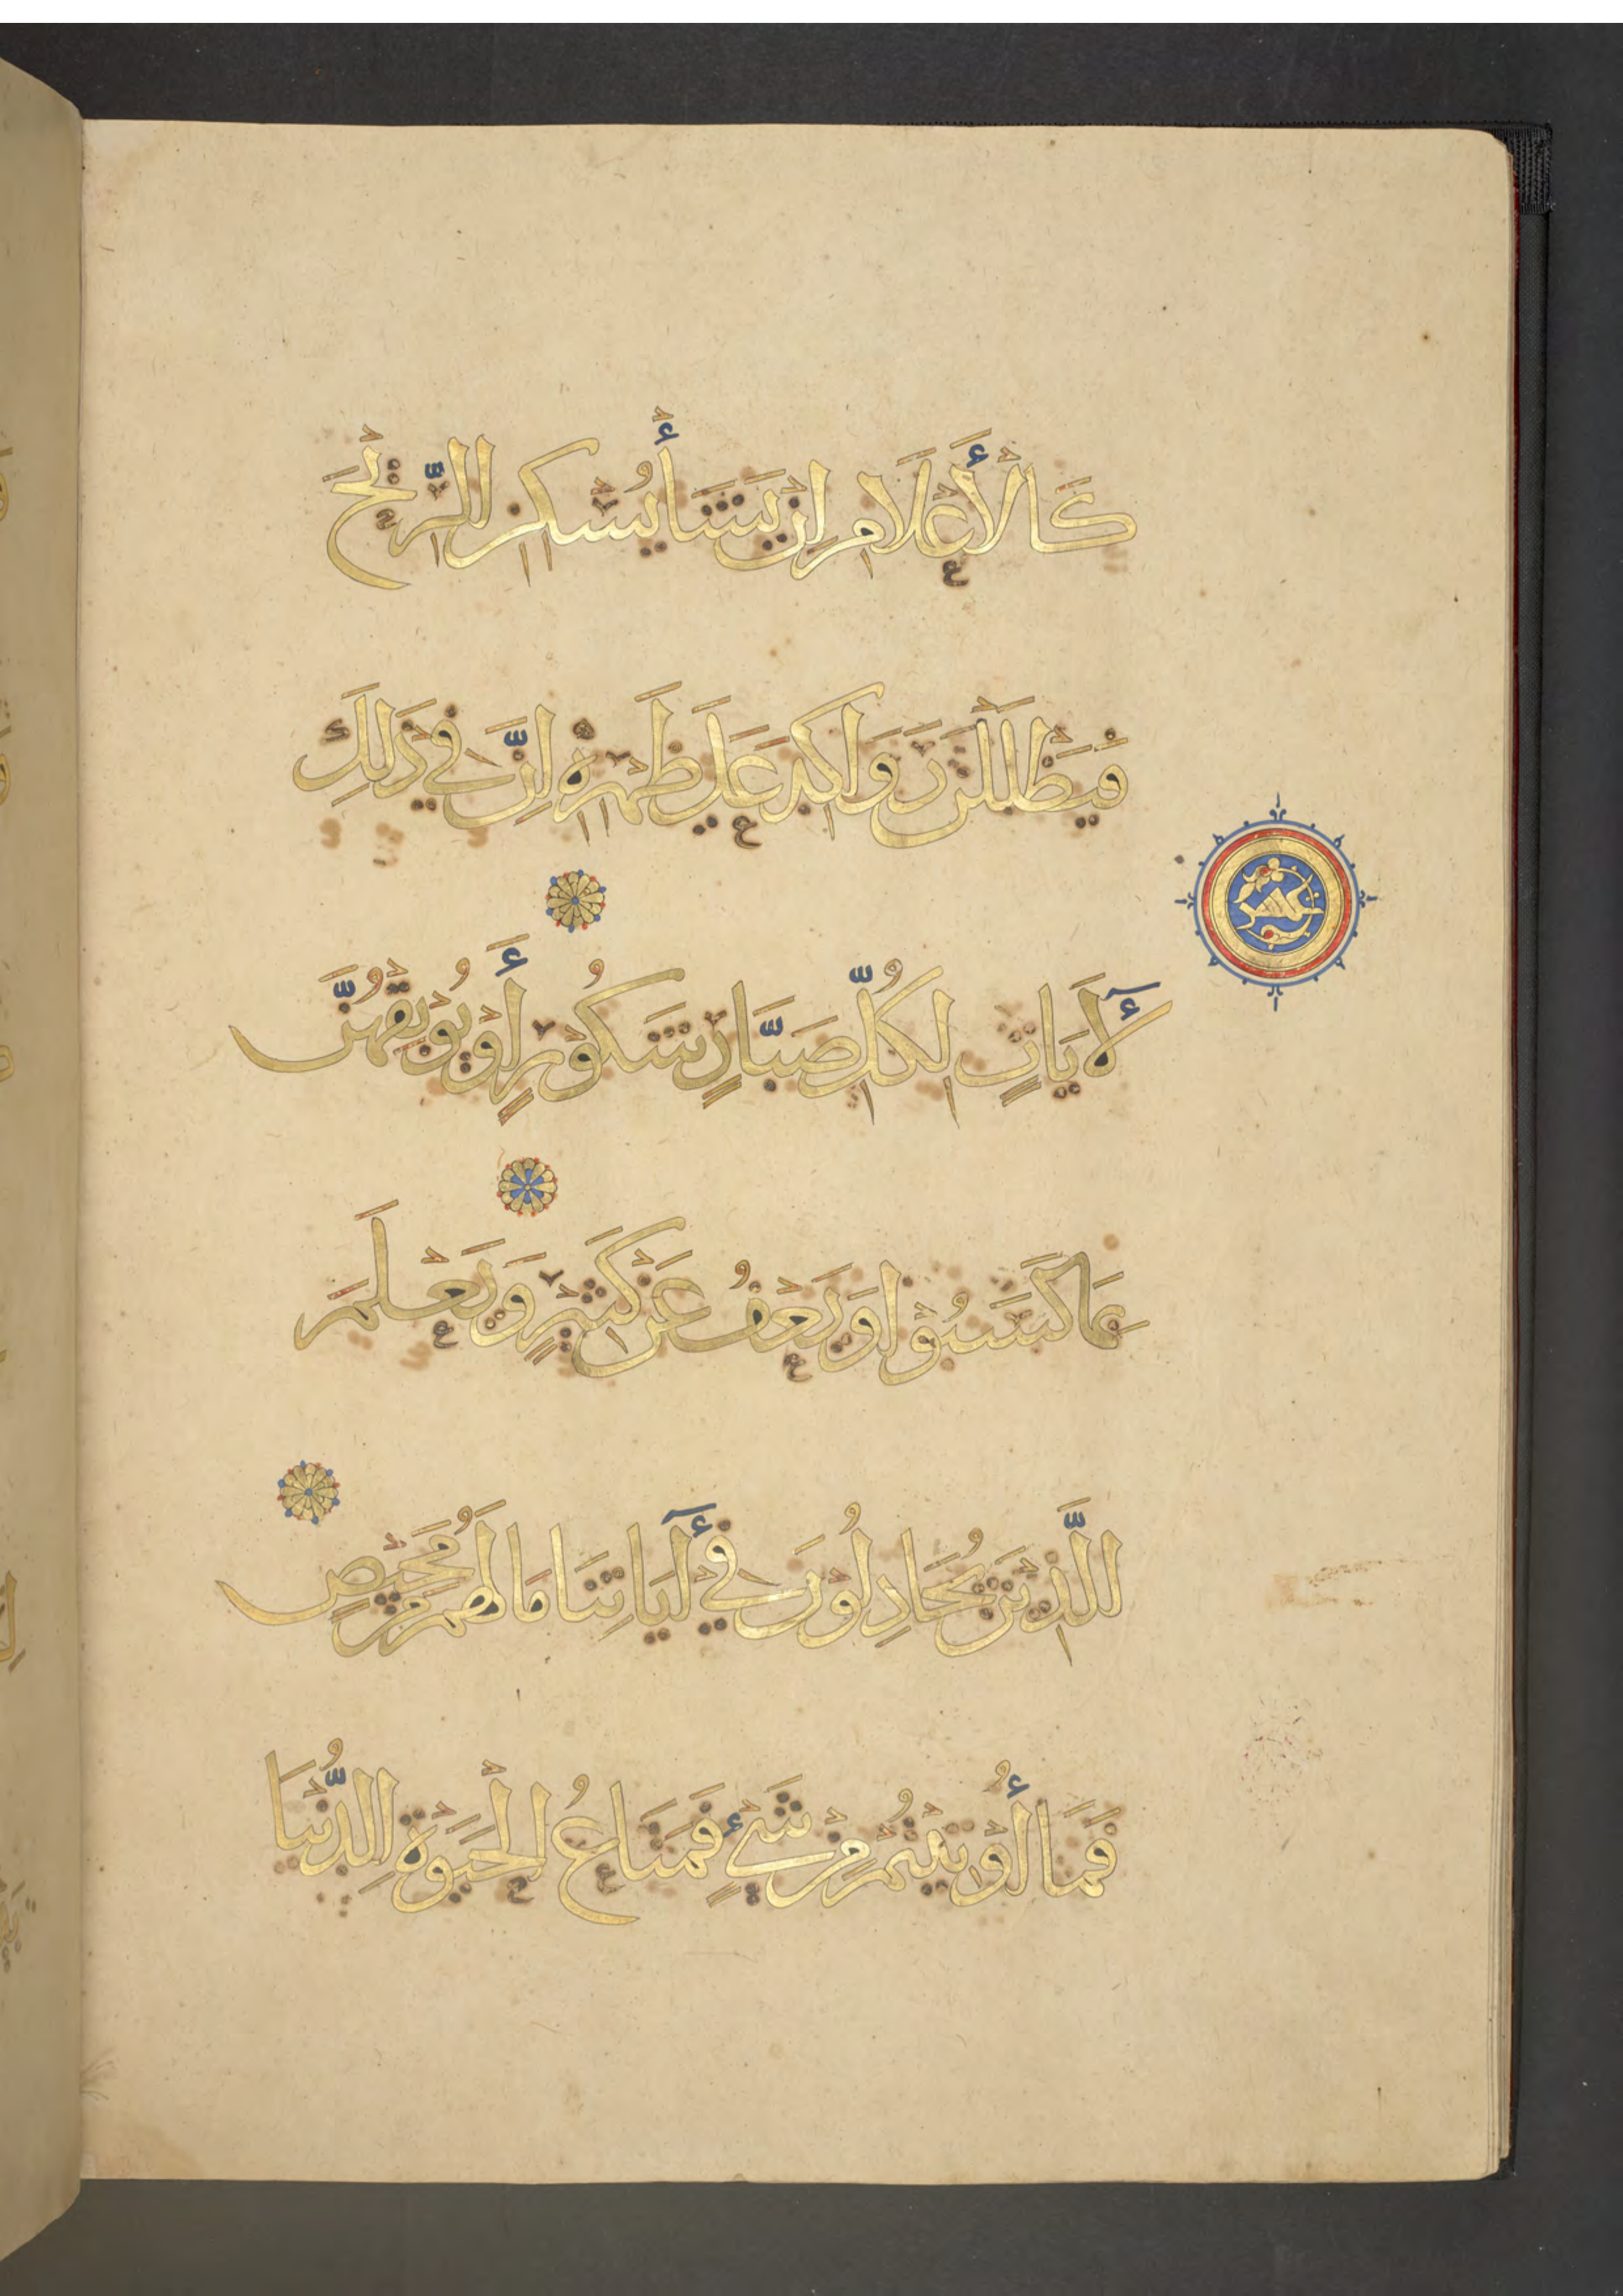 كَالْأَعْلَامِ اِنْ يَشَأْ يُسْكِنِ الرِّيْحَ
فَيَظْلَلْنَ رَوَاكِدَ عَلَى ظَهْرِهِ اِنَّ فِي ذَلِكَ
لَأَيَاتٍ لِكُلِّ صَبَّارٍ شَكُوْرٍ أَوْ يُوْبِقْهُنَّ
بِمَا كَسَبُوْا وَيَعْفُ عَنْ كَثِيْرٍ وَيَعْلَمَ
الَّذِيْنَ يُجَادِلُوْنَ فِي أٓيَاتِنَا مَا لَهُمْ مِنْ مَحِيْصٍ
فَمَا أُوْتِيْتُمْ مِنْ شَيْءٍ فَمَتَاعُ الْحَيَوةِ الدُّنْيَا